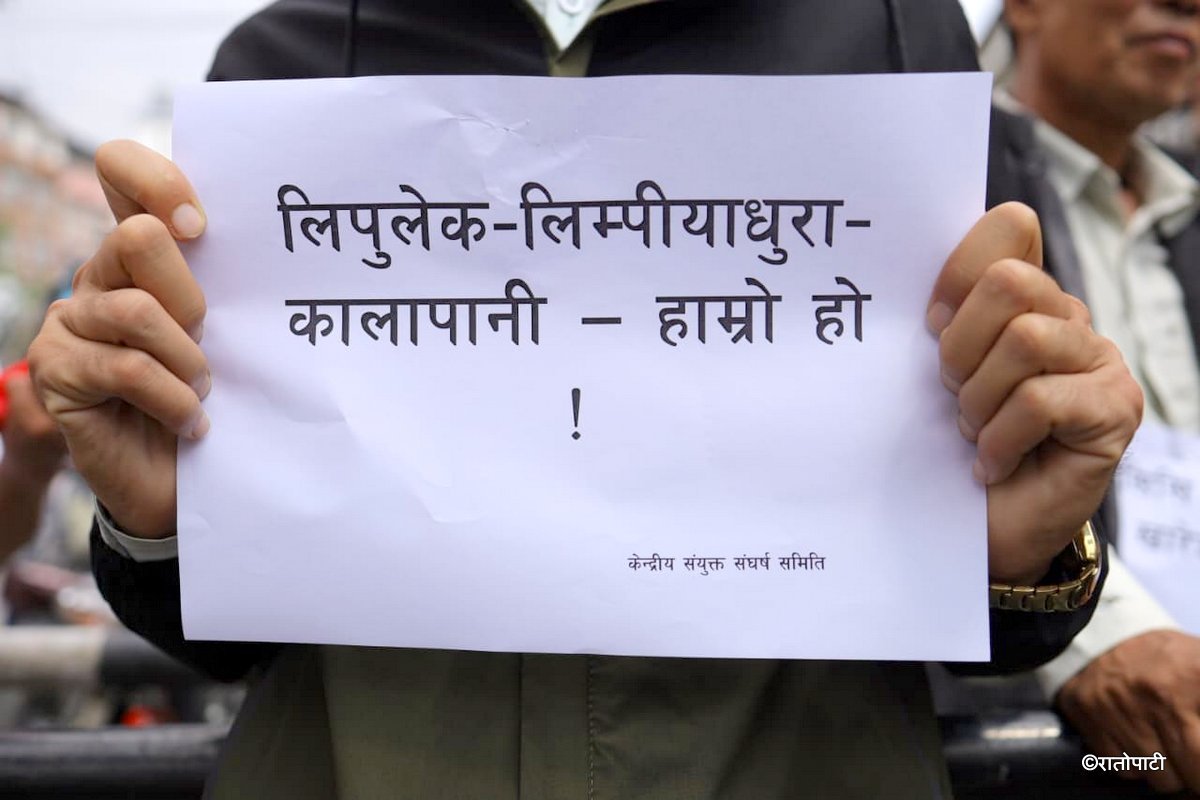 लिपुलेक-लिम्पीयाधुरा-
कालापानी – हाम्रो हो
!
केन्द्रीय संयुक्त संघर्ष समिति
©रातोपाटी